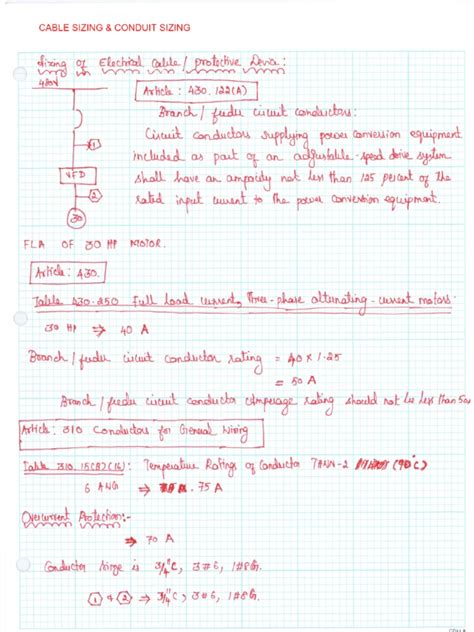 CABLE SIZING & CONDUIT SIZING
Sizing of Electrical Cable / protective Device:
480V
Article : 430.122(A)
Branch / feeder circuit conductors:
Circuit conductors supplying power conversion equipment
①
included as part of an adjustable-speed drive system
VFD
shall have an ampacity not less than 125 percent of the
②
rated input current to the power conversion equipment.
30
FLA OF 30 HP MOTOR.
Article : 430.
Table 430.250 Full Load current, Three-phase alternating-current motors:
30 HP ⇒ 40 A
Branch / feeder circuit conductor rating = 40 x 1.25
= 50 A
Branch / feeder circuit conductor Amperage rating should not be less than 50
Article : 310 Conductors for General Wiring
Table 310.15(B)(16): Temperature Ratings of Conductor THNN-2 (90°C)
6 AWG ⇒ 75 A
Overcurrent Protection:-
⇒ 70 A
Conductor size is 3/4"C, 3#6, 1#8G.
① & ② ⇒ 3/4"C, 3#6, 1#8G.